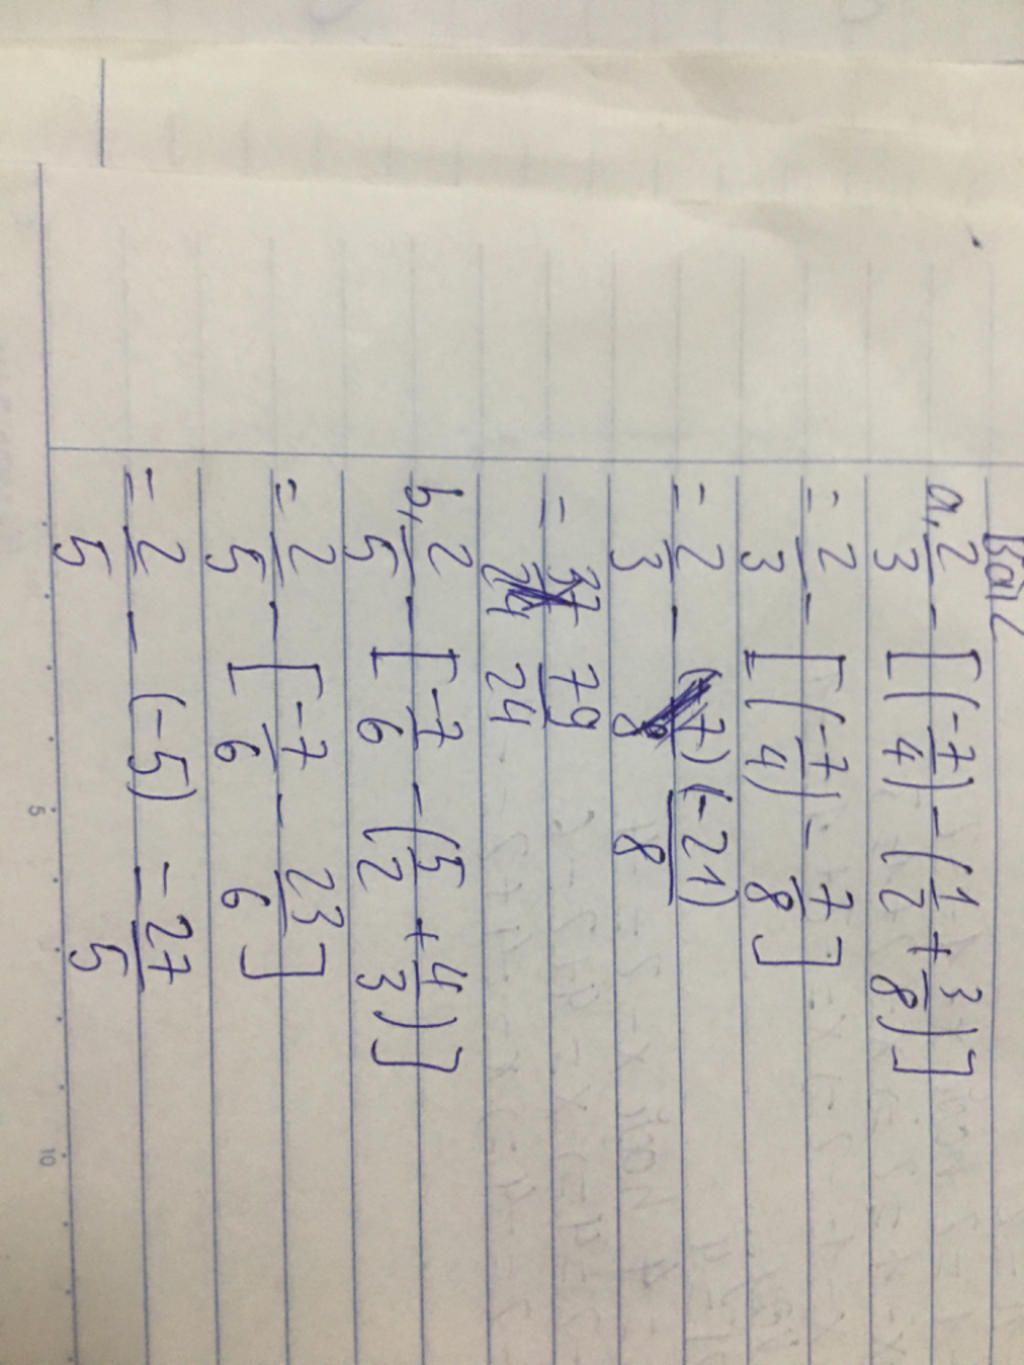 Bài 2
a, 2/3 - [(-7/4) - (1/2 + 3/8)]
= 2/3 - [(-7/4) - 7/8]
= 2/3 - (-21)/8
= 79/24
b, 2/5 - [-7/6 - (5/2 + 4/3)]
= 2/5 - [-7/6 - 23/6]
= 2/5 - (-5) = 27/5
5
10